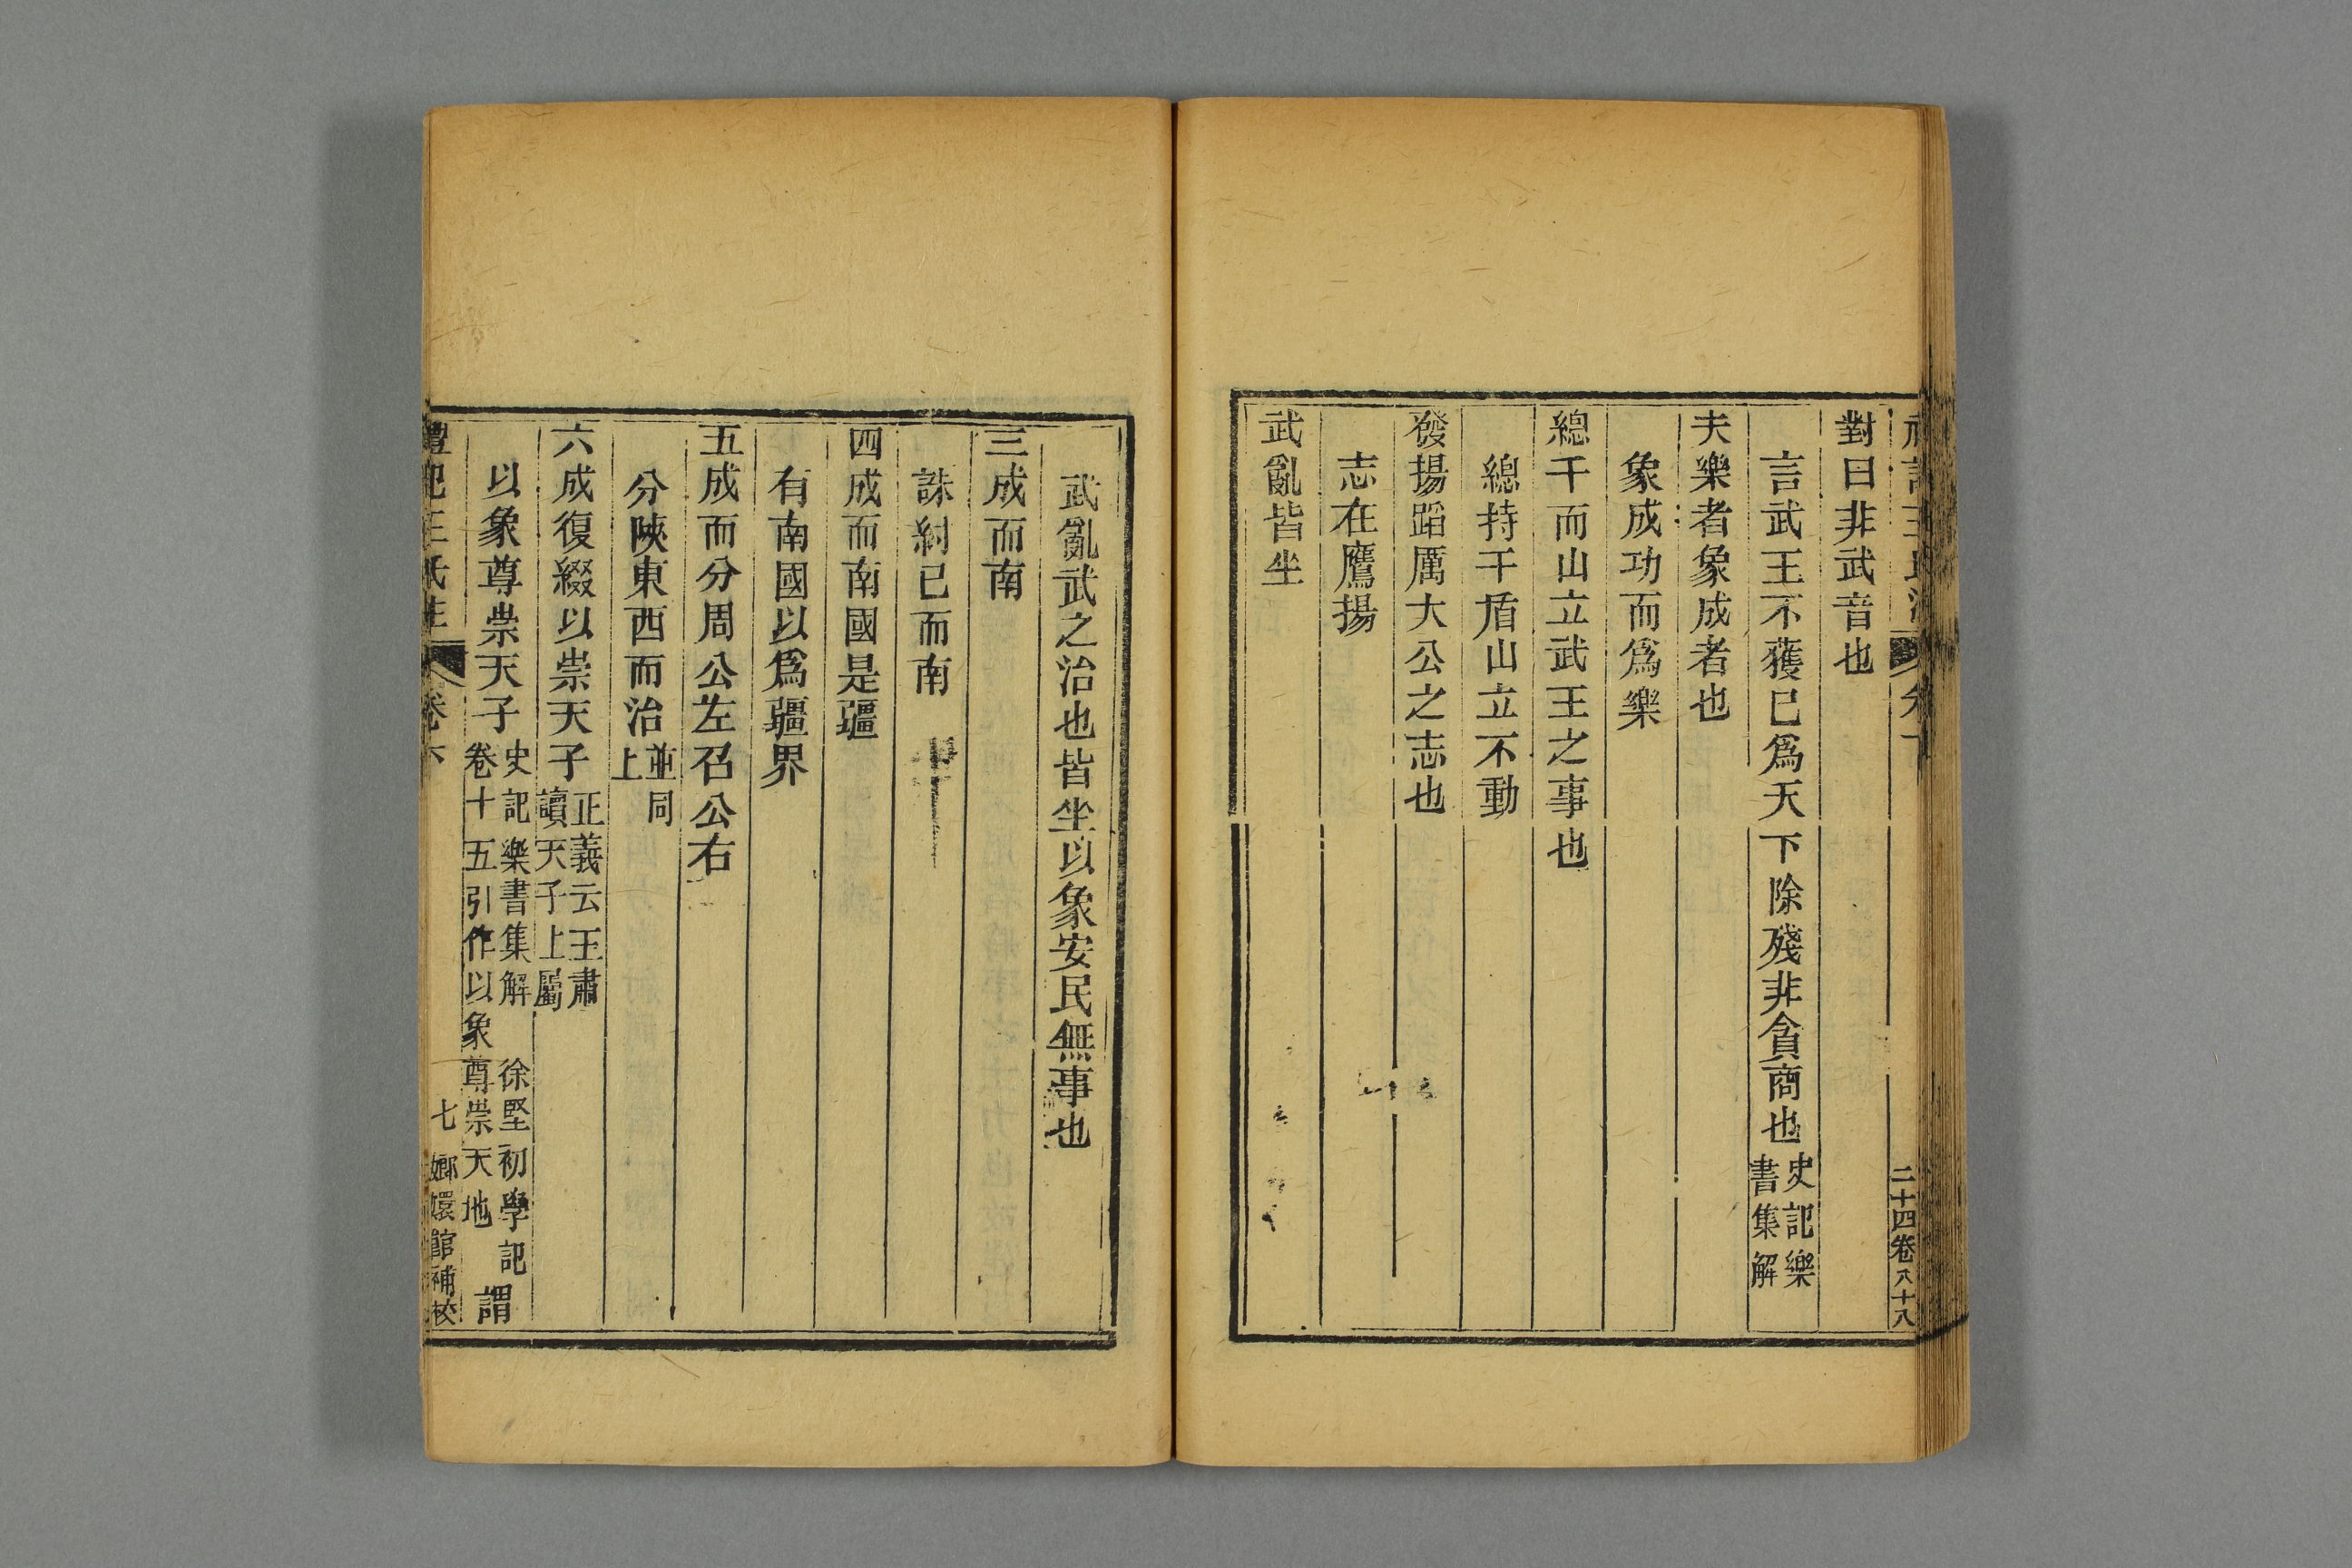 二十四卷八十八
對曰非武音也
言武王不獲已爲天下除殘非貪商也史記樂書集解
夫樂者象成者也
象成功而爲樂
總干而山立武王之事也
總持干盾山立不動
發揚蹈厲大公之志也
志在鷹揚
武亂皆坐
武亂武之治也皆坐以象安民無事也
三成而南
誅紂已而南
四成而南國是疆
有南國以爲疆界
五成而分周公左召公右
分陜東西而治並同上
六成復綴以崇天子正義云王肅讀天子上屬
以象尊崇天子史記樂書集解 徐堅初學記卷十五引作以象尊崇天地 謂
禮記王氏注 卷六 七 嫏嬛館補校